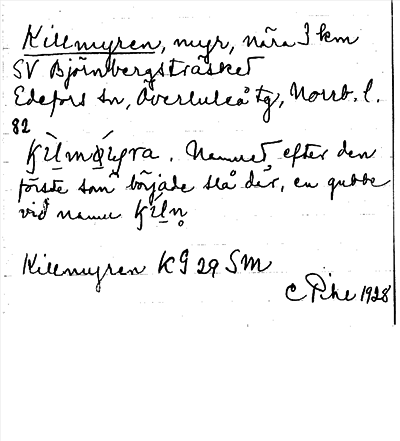 Killmyren, myr, nära 3 km
SV Björnbergsträsket
Edefors sn, Överluleå tg, Norrb. l.
82
Namnet efter den
förste som började slå där, en gubbe
vid namn
Killmyren KG 29 SM
C Pihl 1928